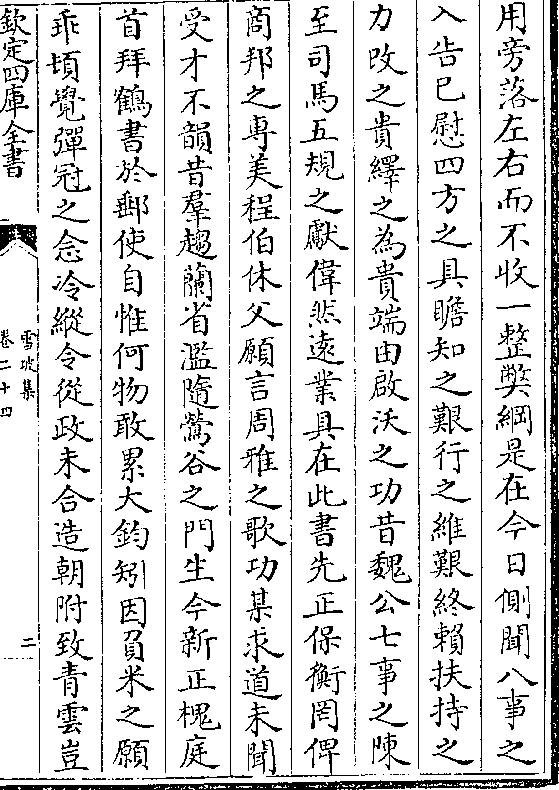 用旁落左右而不收一整弊綱是在今日側聞八事之
入告已慰四方之具瞻知之艱行之維艱終賴扶持之
力改之貴繹之為貴端由啟沃之功昔魏公七事之陳
至司馬五規之獻偉然遠業具在此書先正保衡罔俾
商邦之專美程伯休父願言周雅之歌功某求道未聞
受才不韻昔羣趨蘭省濫隨鶯谷之門生今新正槐庭
首拜鶴書於郵使自惟何物敢累大鈞矧因負米之願
乖頃覺彈冠之念冷縱令從政未合造朝附致青雲豈
欽定四庫全書
雪坡集
卷二十四
二